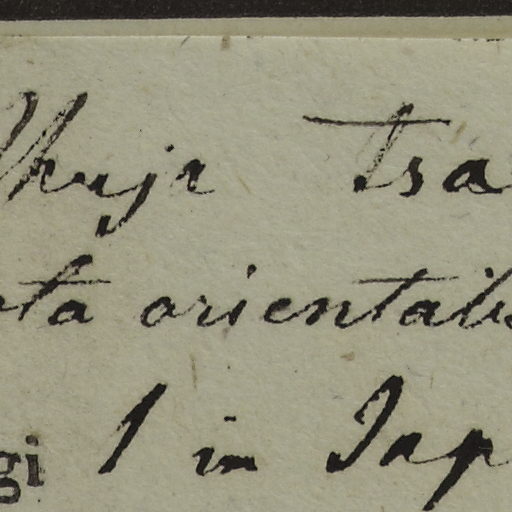 Thuja tsa
ta orientalis
gi 1 in Jap